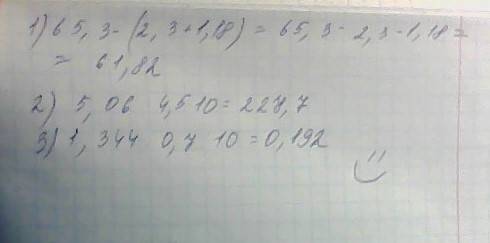 1) 65, 3 - (2, 3 + 1, 18) = 65, 3 - 2, 3 - 1, 18 =
= 61, 82
2) 5, 06 4, 5 10 = 227, 7
3) 1, 344 0, 7 10 = 0, 192